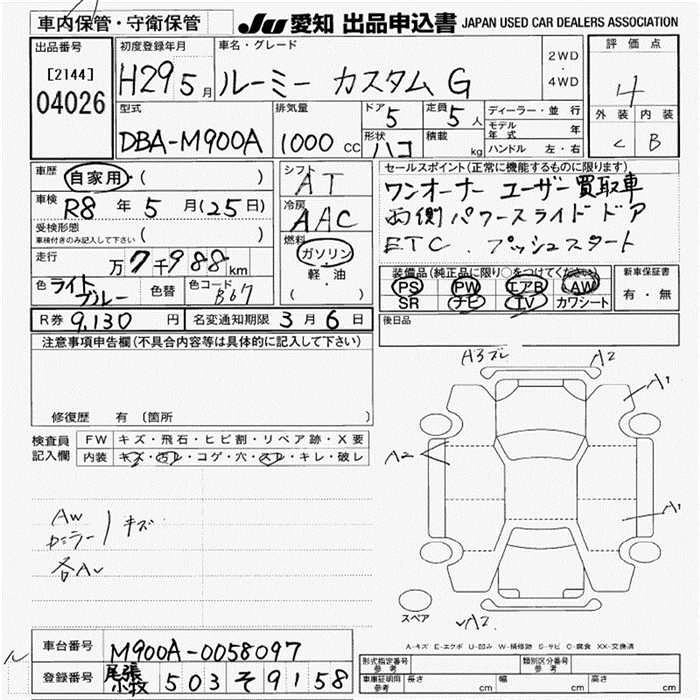 車内保管・守衛保管
JU 愛知 出品申込書 JAPAN USED CAR DEALERS ASSOCIATION
出品番号 [2144] 04026
初度登録年月 H29 5月
車名・グレード ルーミー カスタム G
2WD・4WD
評価点 4
外装 C 内装 B
型式 DBA-M900A
排気量 1000 cc
ドア 5 形状 ハコ
定員 5人 積載 kg
ディーラー・並行
モデル年式 年
ハンドル 左・右
車歴 自家用・( )
車検 R8年5月(25日)
受検形態 車検付きのみ記入して下さい ( )
走行 万7千988km
色 ライトブルー 色替 色コード B67
シフト AT
冷房 AAC
燃料 ガソリン・軽・油 ( )
セールスポイント(正常に機能するものに限ります)
ワンオーナー ユーザー買取車
両側パワースライドドア
ETC プッシュスタート
装備品(純正品に限り○をつけてください)
PS PW エアB AW
SR ナビ TV カワシート
新車保証書 有・無
R券 9,130円 名変通知期限 3月6日
後日品
注意事項申告欄(不具合内容等は具体的に記入して下さい)
修復歴 有 〔箇所
検査員記入欄
FW キズ・飛石・ヒビ割・リペア跡・X要
内装 キズ・汚レ・コゲ・穴・スレ・キレ・破レ
A3 ズレ A2
A1
A2
A1
AW
キズ
各A
スペア
A2
A-キズ E-エクボ U-凹み W-補修跡 S-サビ C-腐食 XX-交換済
車台番号 M900A-0058097
登録番号 尾張小牧 503 そ 9158
形式指定番号 参考 類別区分番号 参考
車庫証明用 参考 長さ cm 幅 cm 高さ cm